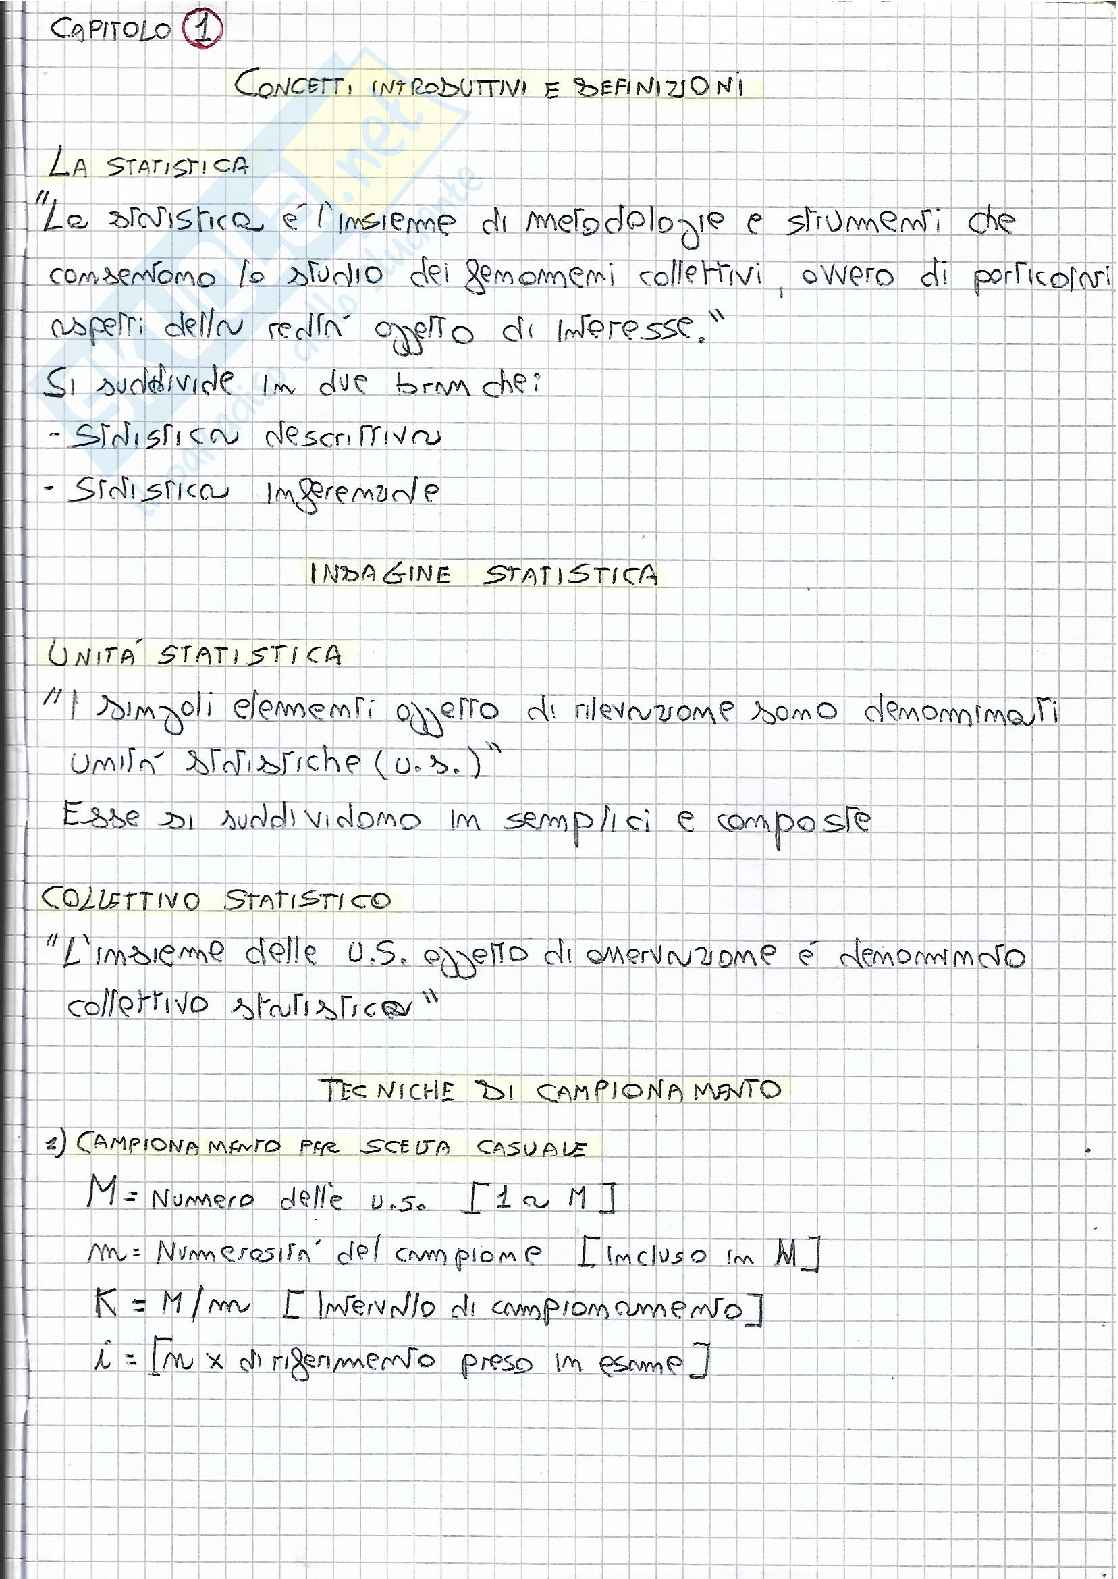 CAPITOLO 1
CONCETTI INTRODUTTIVI E DEFINIZIONI
LA STATISTICA
"La statistica é l'insieme di metodologie e strumenti che
consentono lo studio dei fenomeni collettivi, ovvero di particolari
aspetti della realtà oggetto di interesse."
Si suddivide in due branche:
- Statistica descrittiva
- Statistica inferenziale
INDAGINE STATISTICA
UNITA' STATISTICA
"I singoli elementi oggetto di rilevazione sono denominati
unità statistiche (u.s.)"
Esse si suddividono in semplici e composte
COLLETTIVO STATISTICO
"L'insieme delle U.S. oggetto di osservazione é denominato
collettivo statistico"
TECNICHE DI CAMPIONAMENTO
1) CAMPIONAMENTO PER SCELTA CASUALE
M = Numero delle u.s. [1 a M]
m = Numerosità del campione [incluso in M]
K = M/m [Intervallo di campionamento]
i = [n x di riferimento preso in esame]